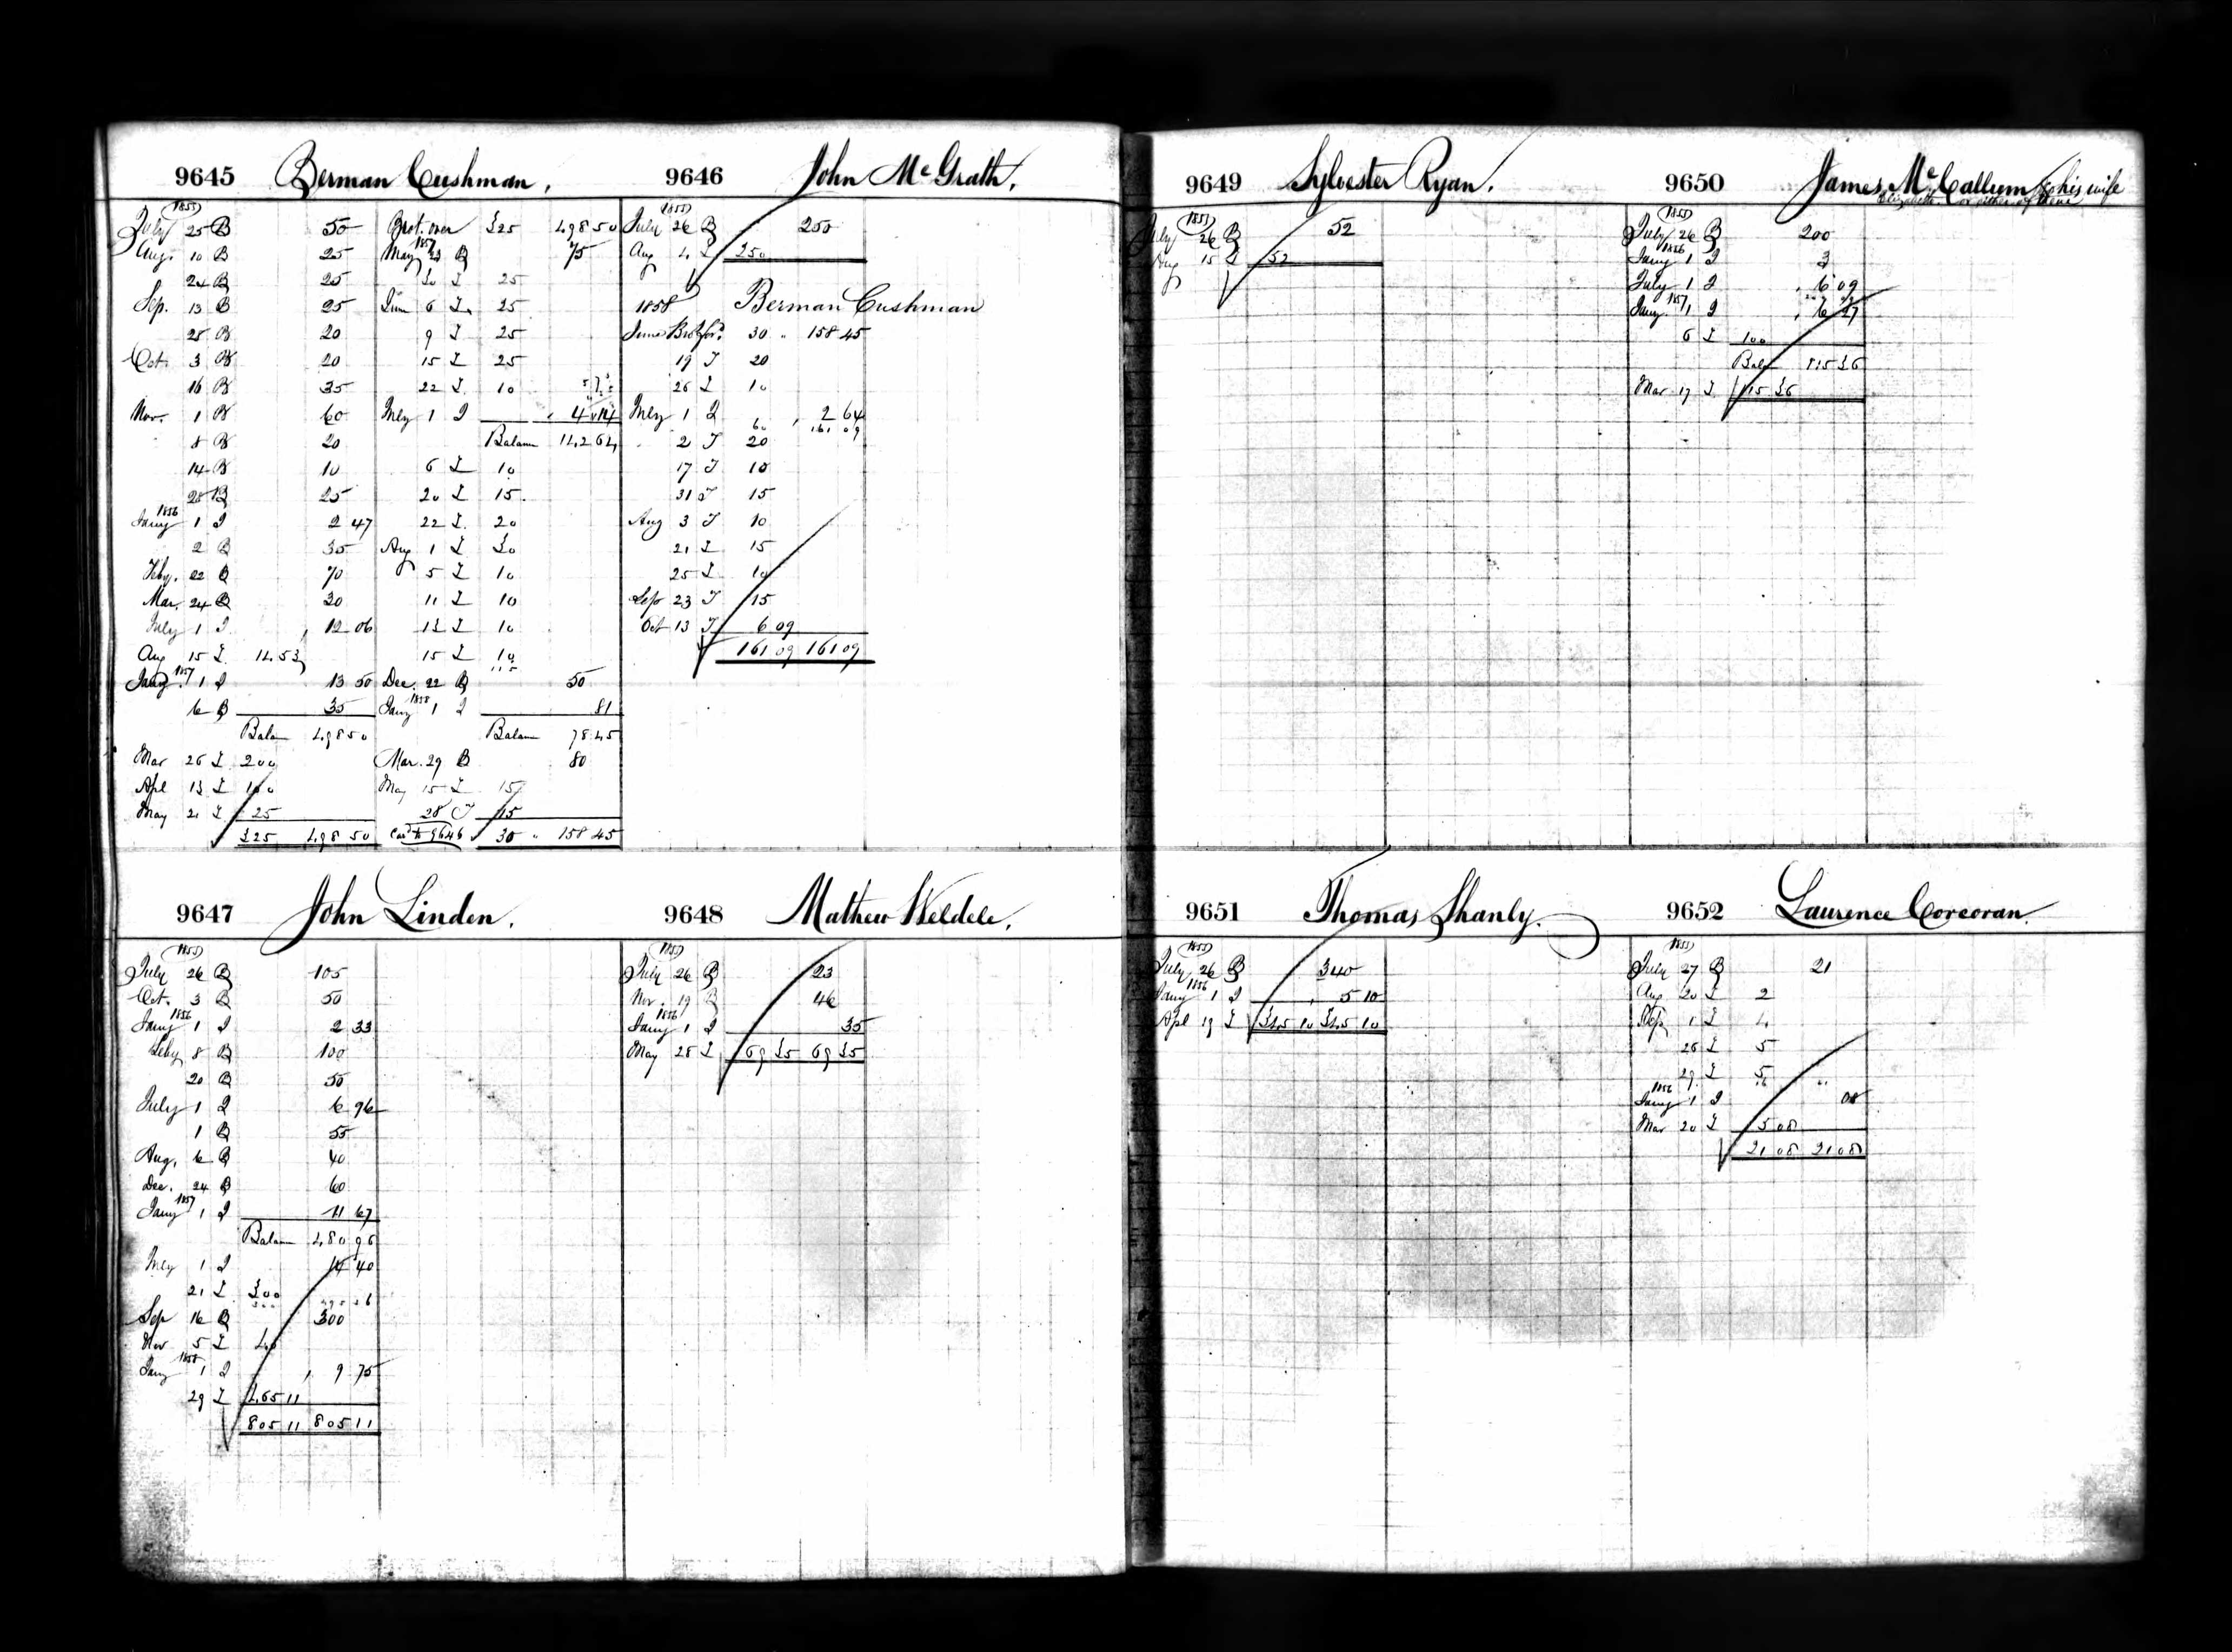 9645 Berman Cushman.
1855
July 25 B 50
Aug. 10 B 25
24 B 25
Sep. 13 B 25
25 B 20
Oct. 3 B 20
16 B 35
Nov. 1 B 60
8 B 20
14 B 10
28 B 25
1856
Jany 1 I 2 47
2 B 35
Feby. 22 B 70
Mar. 24 B 30
July 1 I 12 06
Aug 15 I 1453
1857
Jany. 1 I 13 50
6 B 35
Balan 498 50
Mar 26 I 200
Apl 13 I 100
May 21 I 25
325 498 50
Brot. over 325 498 50
1857
May 23 B 75
30 I 25
June 6 I 25
9 I 25
15 I 25
22 I 10
July 1 I 4 14
Balance 142 64
6 I 10
20 I 15
22 I 20
Aug 1 I 30
5 I 10
11 I 10
13 I 10
15 I 10
Dec. 22 B 50
1858
Jany 1 I 81
Balan 78 45
Mar. 29 B 80
May 15 I 15
28 I 15
Card to 9646 30 " 158 45
9646 John McGrath.
1855
July 26 B 250
Aug 4 I 250
1858 Berman Cushman
June Brot ford. 30 " 158 45
19 I 20
26 I 10
July 1 I 2 64
60 161 09
2 I 20
17 I 10
31 I 15
Aug 3 I 10
21 I 15
25 I 10
Sep 23 I 15
Oct 13 I 6 09
161 09 161 09
9647 John Linden.
1855
July 26 B 105
Oct. 3 B 50
1856
Jany 1 I 2 33
Feby 8 B 100
20 B 50
July 1 I 6 96
1 B 55
Aug. 6 B 40
Dec. 24 B 60
1857
Jany 1 I 11 67
Balan 480 96
July 1 I 14 40
21 I 300
Sep 16 B 300
Nov 5 I 40
1858
Jany 1 I 9 75
29 I 465 11
805 11 805 11
9648 Mathew Weldele.
1855
July 26 B 23
Nov. 19 B 46
1856
Jany 1 I 35
May 28 I 69 35 69 35
9649 Sylvester Ryan.
1855
July 26 B 52
Aug 15 I 52
9650 James McCallum, or his wife
Elizabeth or either of them
1855
July 26 B 200
1856
Jany 1 I 3
July 1 I 6 09
1857
Jany 1 I 6 27
6 I 100
Balan 115 36
Mar 17 I 115 36
9651 Thomas Shanly.
1855
July 26 B 340
1856
Jany 1 I 5 10
Apl 19 I 345 10 345 10
9652 Laurence Corcoran.
1855
July 27 B 21
Aug 20 I 2
Sep 1 I 4
26 I 5
29 I 5
1856
Jany 1 I 08
Mar 20 I 5 08
21 08 21 08